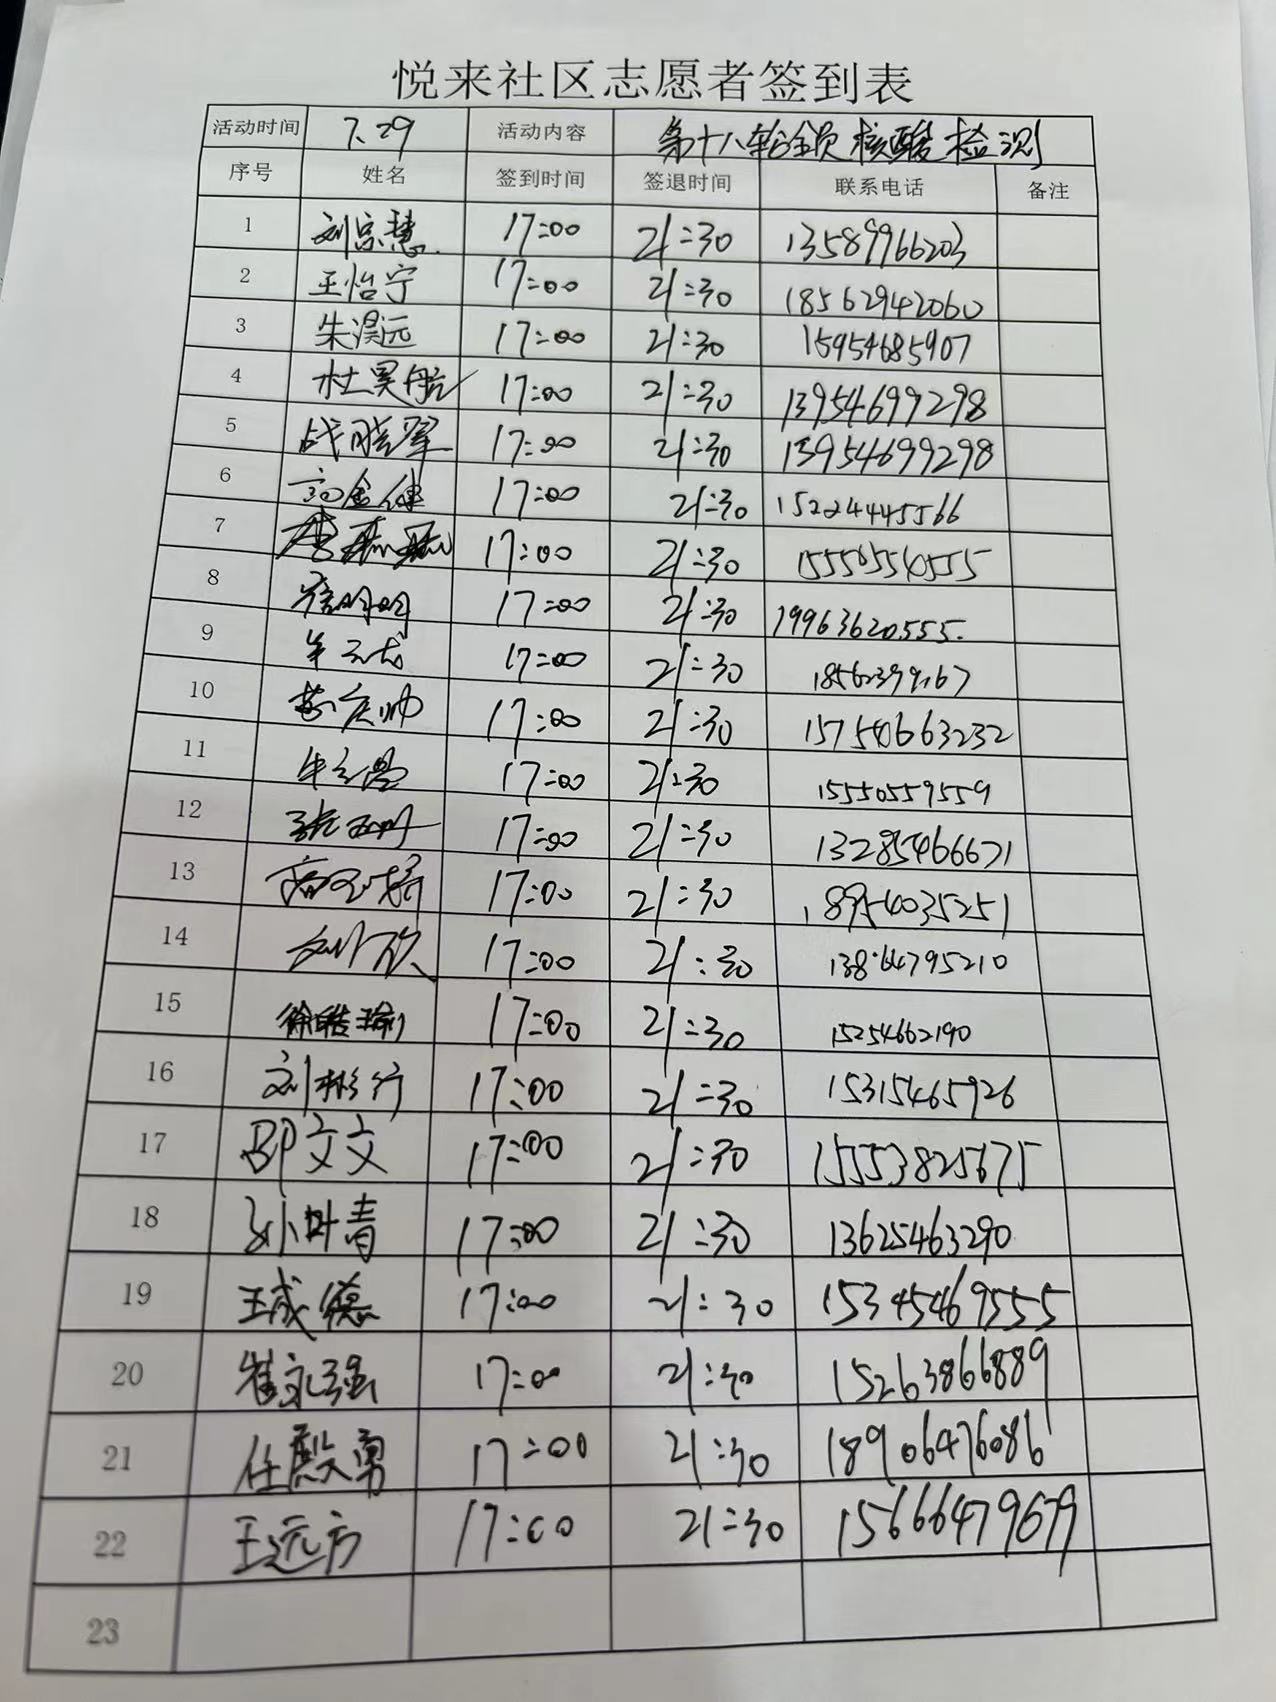 悦来社区志愿者签到表
活动时间 7.29 活动内容 第十八轮全员核酸检测
序号 姓名 签到时间 签退时间 联系电话 备注
1 刘宗慧 17:00 21:30 13589966203
2 王怡宁 17:00 21:30 18562942060
3 朱淏远 17:00 21:30 15954685907
4 杜昊航 17:00 21:30 13954699298
5 战晓翠 17:00 21:30 13954699298
6 高金健 17:00 21:30 15224445566
7 17:00 21:30 15550554055
8 徐明明 17:00 21:30 19963620555
9 牟云龙 17:00 21:30
10 黄庆帅 17:00 21:30 15754663232
11 牛立昌 17:00 21:30 15550559559
12 17:00 21:30 13285466671
13 17:00 21:30 18954035251
14 刘欣 17:00 21:30 13864795210
15 徐皓瑜 17:00 21:30 15254662190
16 刘彬行 17:00 21:30 15315465926
17 郎文文 17:00 21:30 15553825675
18 孙叶青 17:00 21:30 13625463290
19 王成德 17:00 21:30 15345469555
20 崔永强 17:00 21:30 15263866889
21 任殿勇 17:00 21:30 18906476086
22 王远方 17:00 21:30 15666479679
23